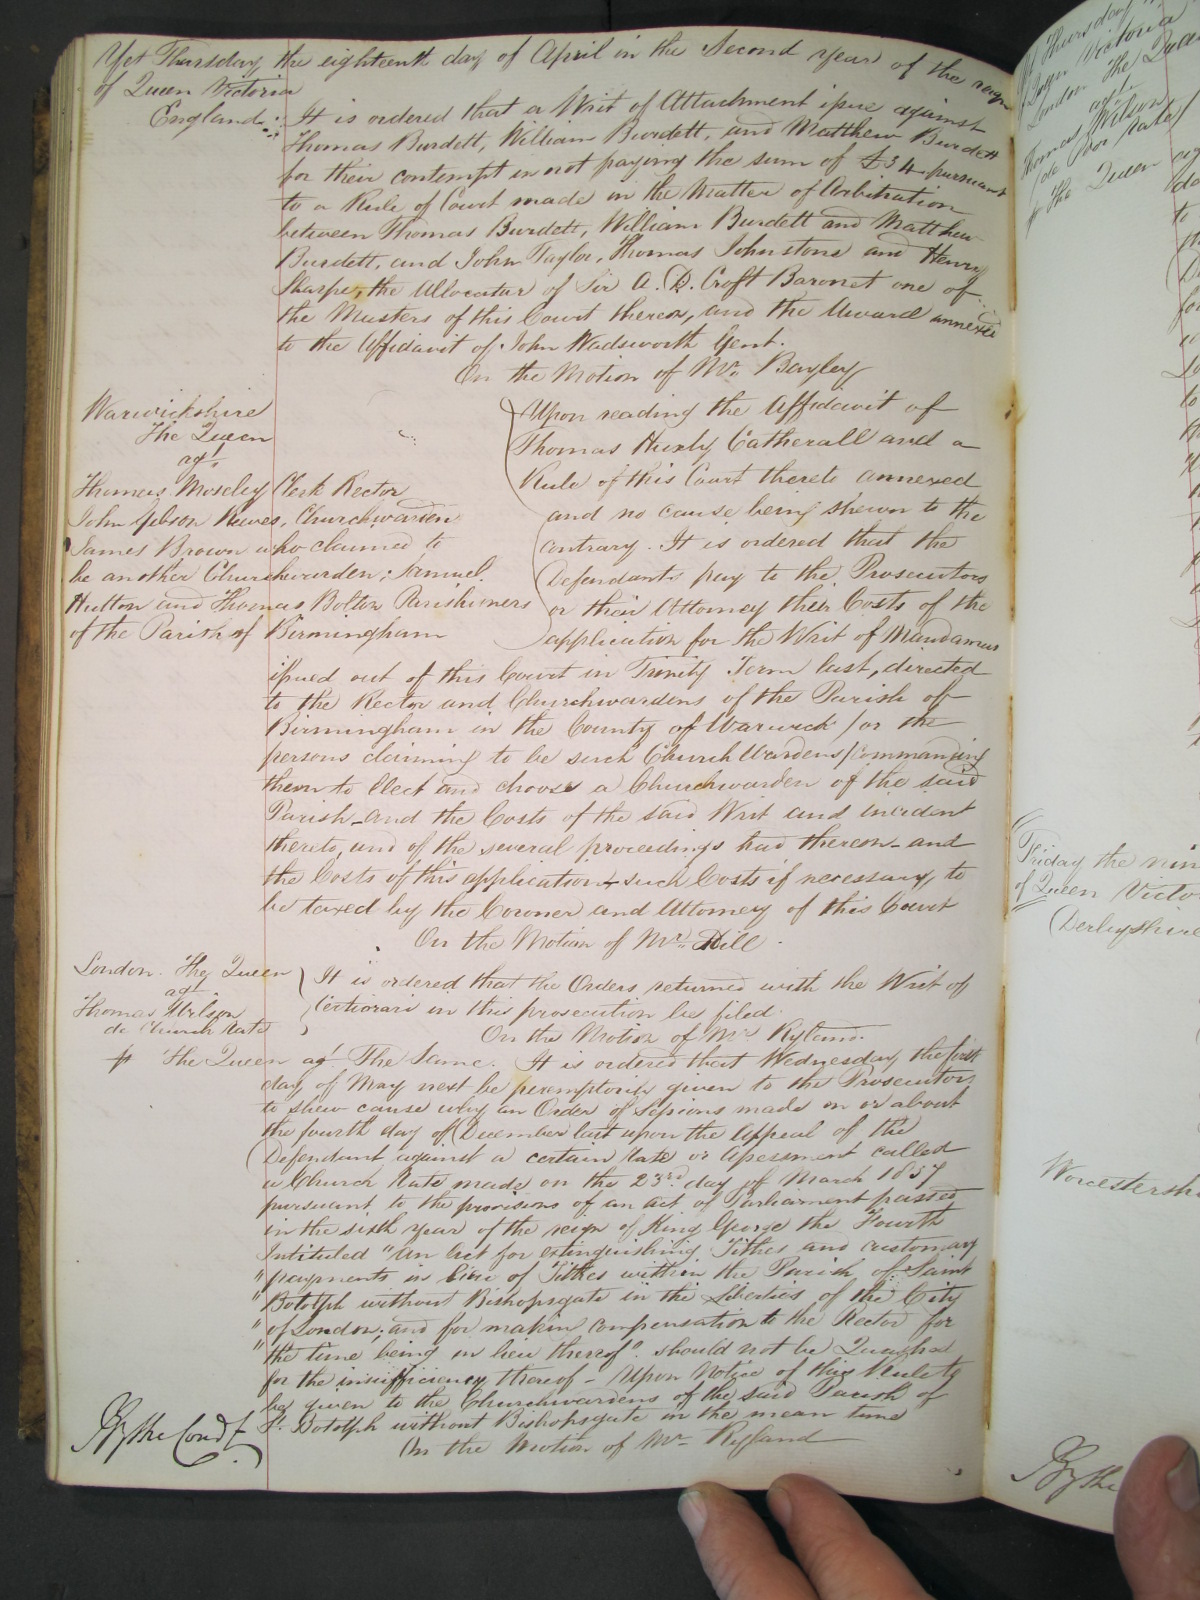 Yet Thursday the eighteenth day of April in the Second year of the reign
of Queen Victoria
England. It is ordered that a Writ of Attachment issue against
Thomas Burdett, William Burdett, and Matthew Burdett
for their contempt in not paying the sum of £34 pursuant
to a Rule of Court made in the Matter of Arbitration
between Thomas Burdett, William Burdett and Matthew
Burdett, and John Taylor, Thomas Johnstone and Henry
Sharpe, the Allocatur of Sir A. D. Croft Baronet one of
the Masters of this Court thereon, and the Award annexed
to the Affidavit of John Wadsworth Gent.
On the Motion of Mr. Bayley
Warwickshire
The Queen
agt.
Thomas Moseley Clerk Rector
John Gibson Reeves, Churchwarden
James Brown who claimed to
be another Churchwarden; Samuel
Hutton and Thomas Bolton Parishioners
of the Parish of Birmingham
Upon reading the Affidavit of
Thomas Huxly Catherall and a
Rule of this Court thereto annexed
and no cause being shewn to the
contrary. It is ordered that the
Defendants pay to the Prosecutors
or their Attorney their Costs of the
application for the Writ of Mandamus
issued out of this Court in Trinity Term last, directed
to the Rector and Churchwardens of the Parish of
Birmingham in the County of Warwick /or the
persons claiming to be such Church Wardens/ commanding
them to Elect and choose a Churchwarden of the said
Parish and the Costs of the said Writ and incident
thereto, and of the several proceedings had thereon and
the Costs of this application such Costs if necessary, to
be taxed by the Coroner and Attorney of this Court
On the Motion of Mr. Hill.
London. The Queen
agt
Thomas Wilson
de Church Rate
It is ordered that the Orders returned with the Writ of
Certiorari in this prosecution be filed.
On the Motion of Mr. Ryland.
p The Queen agt. The Same. It is ordered that Wednesday the first
day of May next be peremptorily given to the Prosecutor
to shew cause why an Order of Sessions made on or about
the fourth day of December last upon the Appeal of the
Defendant against a certain Rate or Assessment called
a Church Rate made on the 23rd. day of March 1837
pursuant to the provisions of an Act of Parliament passed
in the sixth year of the reign of King George the Fourth
Intituled "An Act for extinguishing Tithes and customary
" payments in lieu of Tithes within the Parish of Saint
" Botolph without Bishopsgate in the Liberties of the City
" of London; and for makin compensation to the Rector for
" the time being in lieu thereof" should not be Quashed
for the insufficiency thereof – Upon Notice of this Rule to
be given to the Churchwardens of the said Parish of
St. Botolph without Bishopsgate in the mean time
On the Motion of Mr. Ryland
Thomas Wilson
The Queen
Friday the nin
of Queen Victo
Derbyshire
Worcestersh